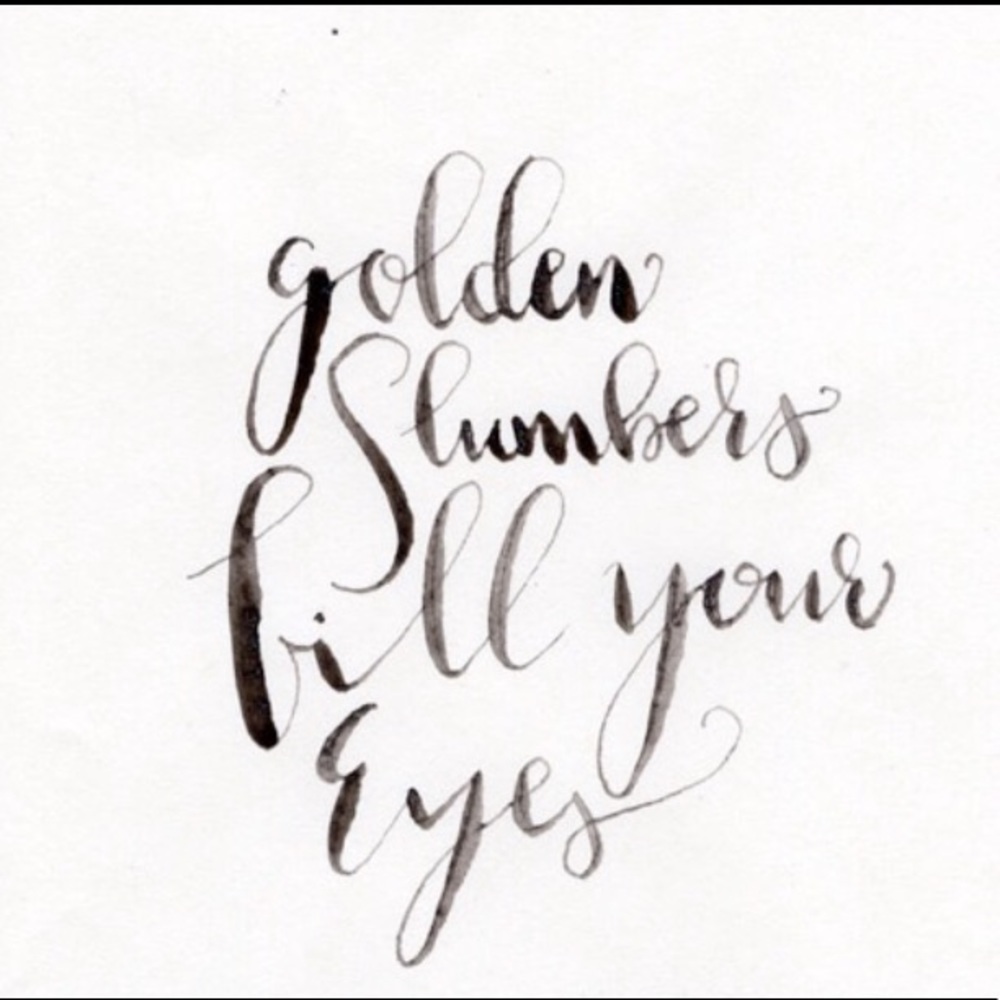 golden
Slumbers
fill your
Eyes